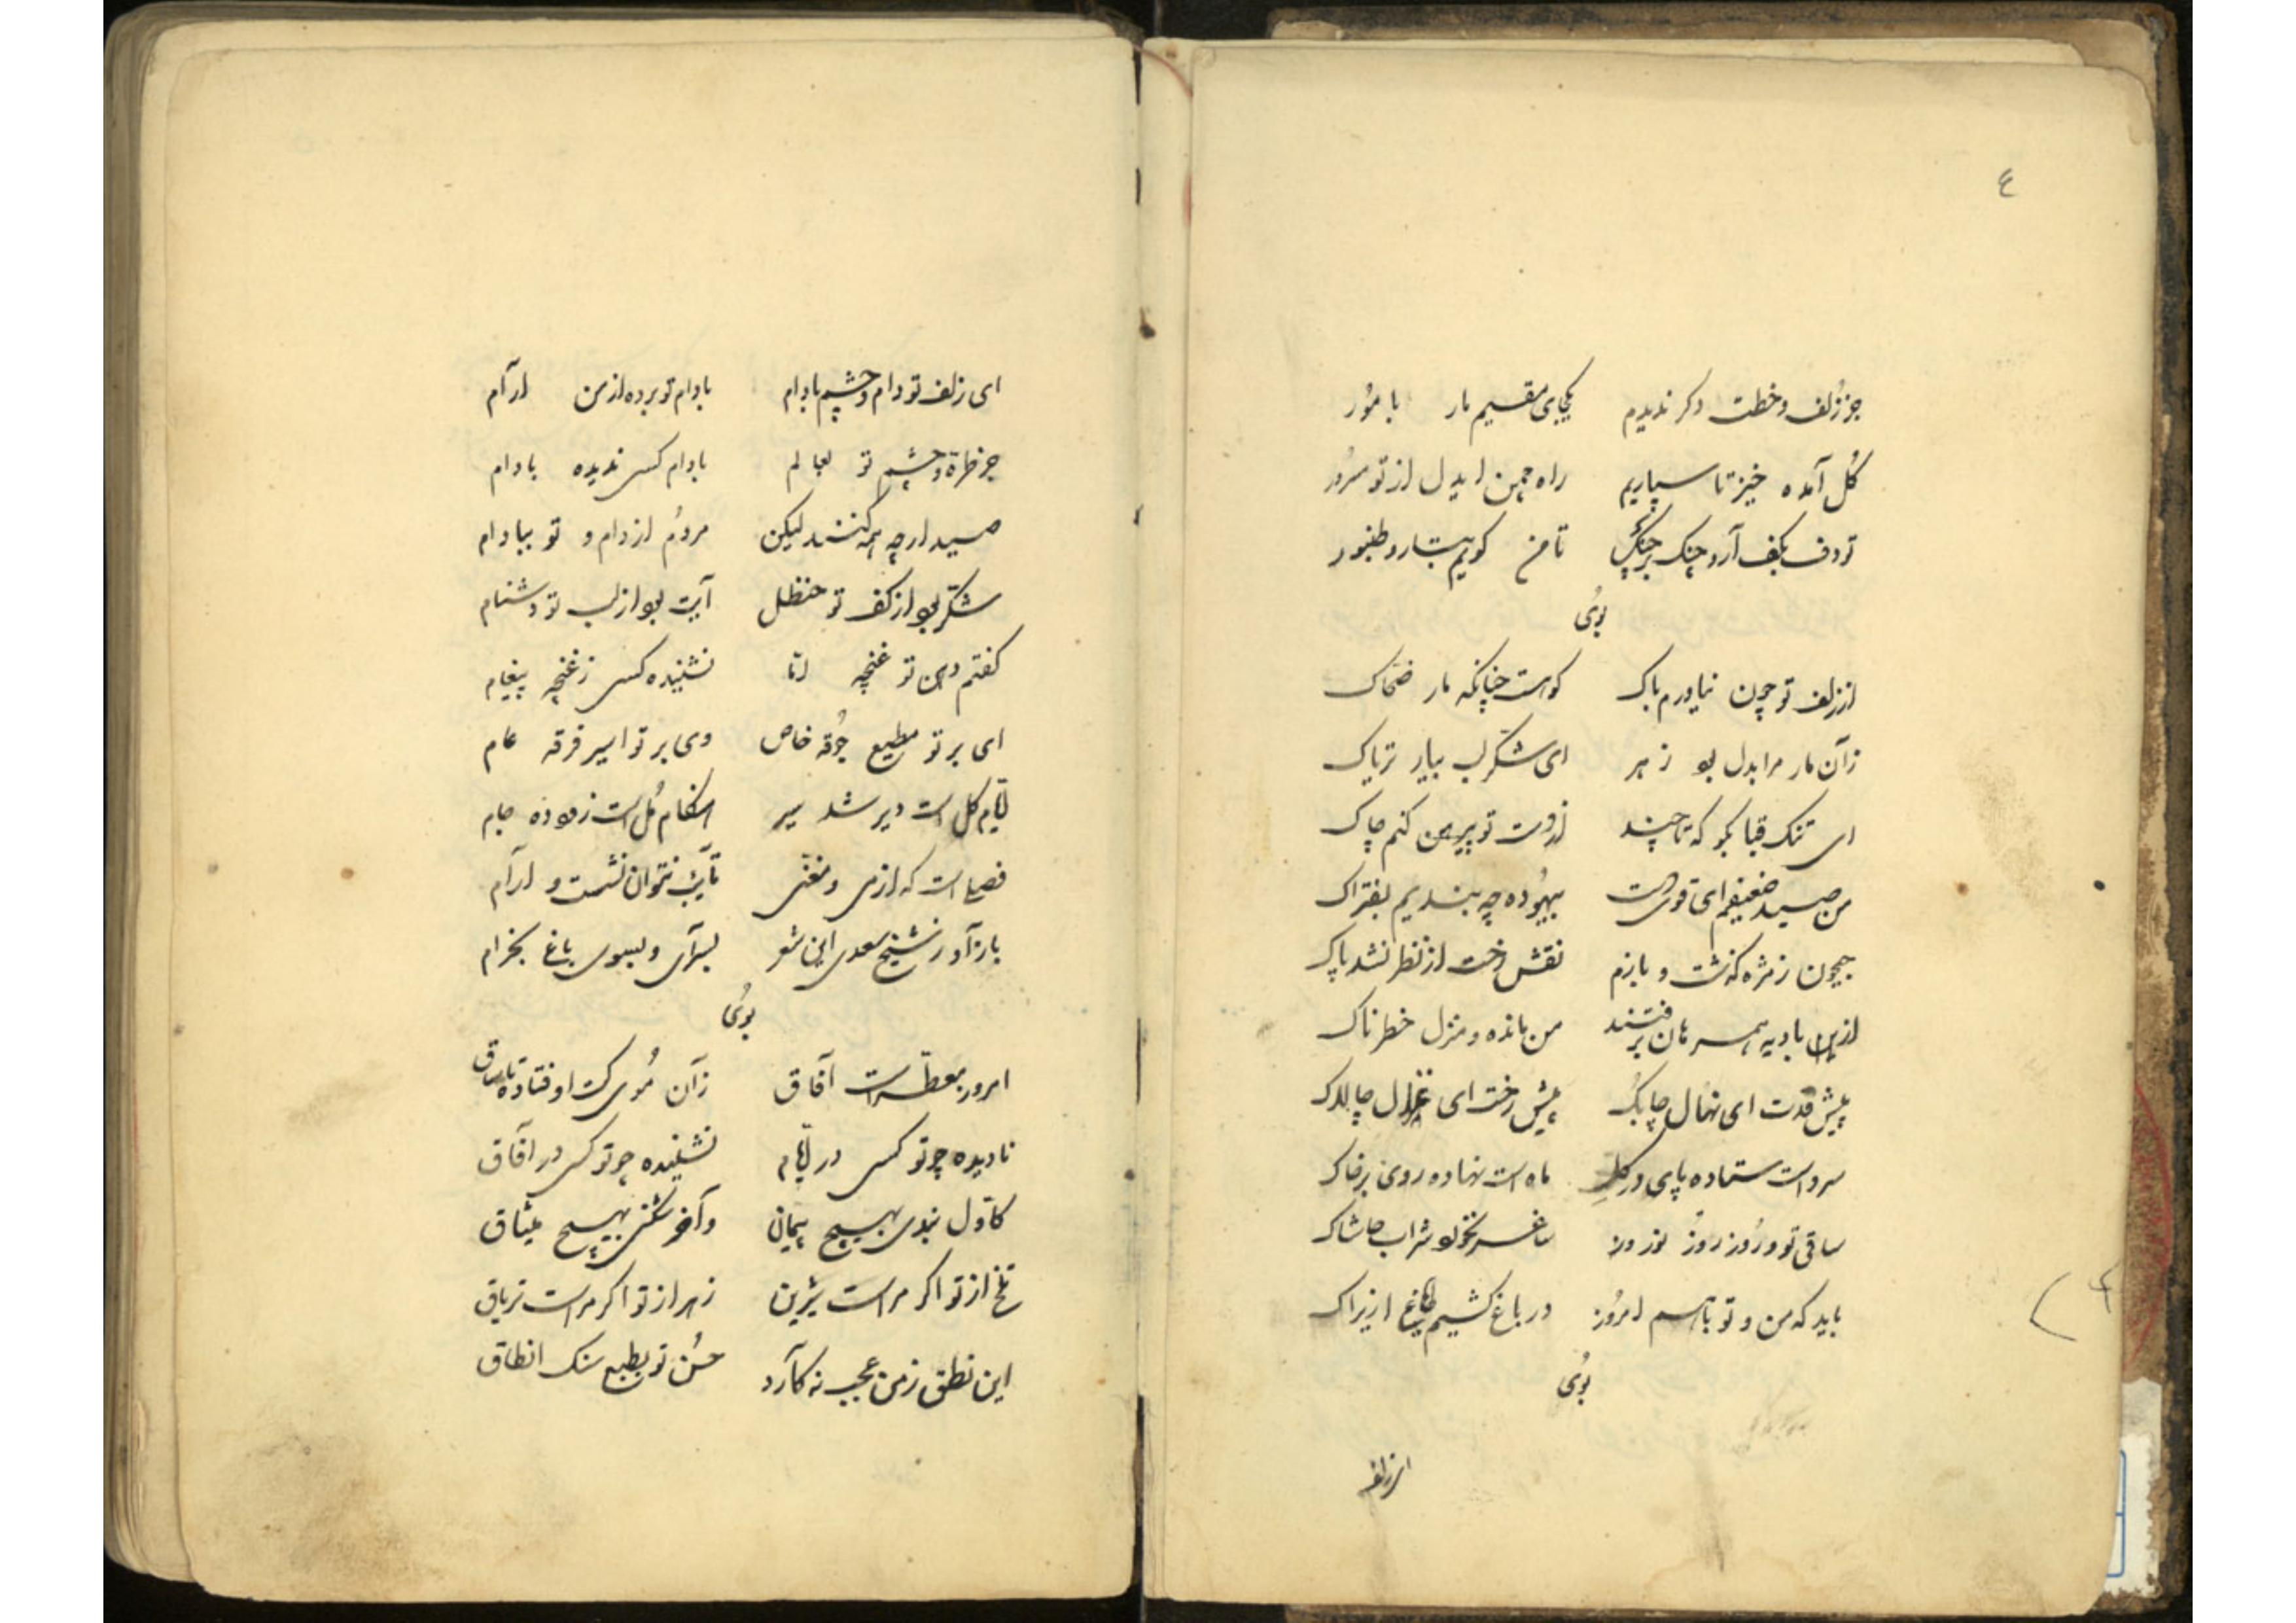 ٤
جز زُلف و خطت دکر ندیدم یکجای مقیم مار با مُور
کُل آمده خیز تا سپاریم راه چمن ایدل از تو سرُور
تو دف بکف آر و چنک بر چنک تا من کویم بتار و طنبور
اززلف تو چون نیاورم باک کوهست چنانکه مار ضحّاک
زآن مار مرا بدل بود زهر ای شکّر لب بیار تریاک
ای تنک قبا بکو که تا چند از دست تو پیرهن کنم چاک
من صید ضعیفم ای قوی دست بیهُوده چه بندیم بفتراک
جیحون زمژه کذشت و بازم نقش رخت از نظر نشد پاک
ازین بادیه همرهان برفتند من مانده و منزل خطرناک
پیش قدت ای نهال چابک پیش رخت ای غزال چالاک
سرو است ستاده پای در کل ماه است نهاده روی بر خاک
ساقی تو و رُوز روُز نوروز ساغر نخورد شراب حاشاک
باید که من و تو باهم امرُوز در باغ کشیم ازیراک
ای زلف تو دام و چشم بادام بادام تو برده از من ارآم
جز طرّه و چشم تو بعالم بادام کسی ندیده بادام
صید ارچه همه کنند لیکن مردُم از دام و تو ببادام
شکّر بود از کف تو حنظل آیت بود از لب تو دشنام
کفتم دهن تو غنچه امّا نشنیده کسی ز غنچه پیغام
ای بر تو مطیع جُوقه خاص وی بر تو اسیر فرقه عام
ایّام کل است دیر شد می هنکام مُل است زود ده جام
فصلی است که از می و مغنّی تا یک نتوان نشست و ارآم
بازآور شیخ سعدی این شعر بسرآی و بسوی باغ بخرام
امروز معطّر است آفاق زآن مُوی کت اوفتاده تا ساق
نادیده چو تو کسی در ایّام نشنیده چو تو کس در آفاق
کاوّل نبدی بهیچ پیمان وآخر نشدی بهیچ میثاق
تلخ از تو اکر مراست شیرین زهر از تو اکر مراست تریاق
این نطق ز من عجب نه کآرد حسُن تو بطبع سنک انطاق